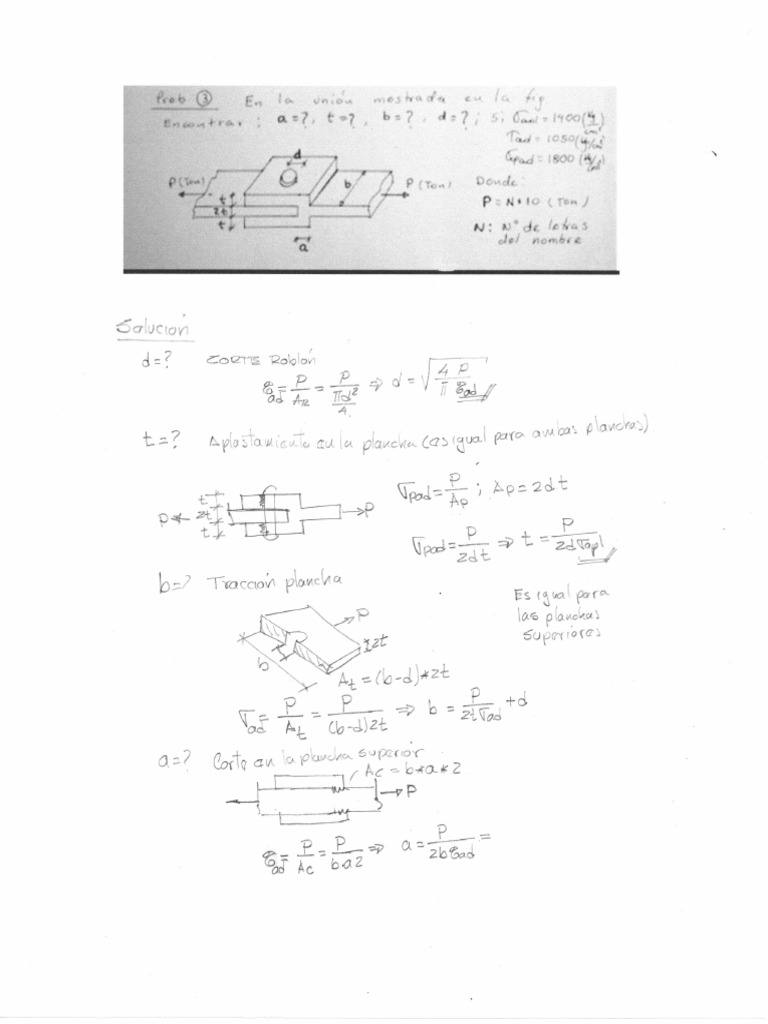 Prob ③ En la unión mostrada en la fig
Encontrar: a=?, t=?, b=?, d=?; Si σad = 1400 (kg/cm²)
τad = 1050 (kg/cm²)
σpad = 1800 (kg/cm²)
d
P (Ton)
t
2t
t
b
P (Ton)
a
Donde:
P = N*10 (Ton)
N: Nº de letras
del nombre
Solución
d=? CORTE Roblón
τad = P/AR = P/(πd²/4) ⇒ d = √(4P/(π τad))
t=? Aplastamiento en la plancha (es igual para ambas planchas)
t
2t
t
P
P
σpad = P/Ap ; Ap = 2dt
σpad = P/2dt ⇒ t = P/(2dσapl)
b=? Tracción plancha
Es igual para
las planchas
superiores
P
2t
b
At = (b-d)*2t
σad = P/At = P/((b-d)2t) ⇒ b = P/(2tσad) + d
a=? Corte en la plancha superior
Ac = b*a*2
P
τad = P/Ac = P/(b·a2) ⇒ a = P/(2bτad) =